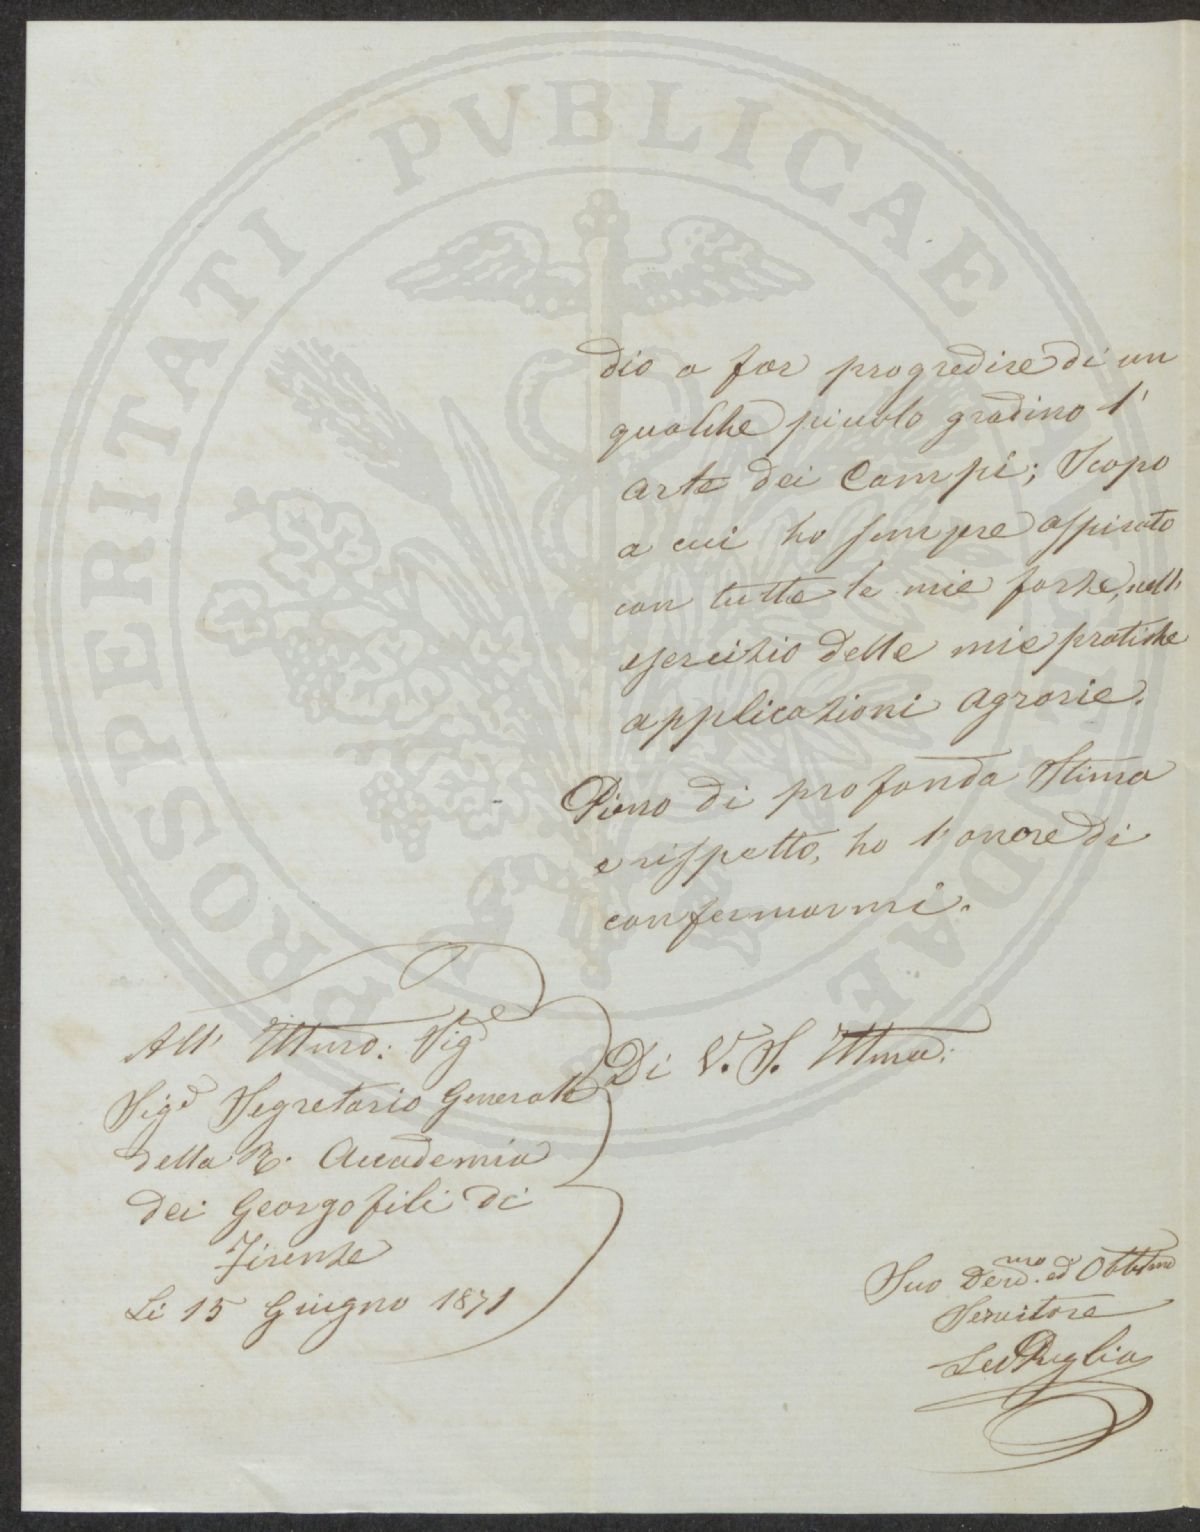 dio a far progredire di un
qualche piccolo gradino l'
arte dei Campi; Scopo
a cui ho sempre aspirato
con tutte le mie forze, nell'
esercizio delle mie pratiche
applicazioni agrarie.
Pieno di profonda Stima
e rispetto, ho l'onore di
confermarmi.
Di V. S. Illma:
All' Illmo: Sigr
Sigr Segretario Generale
della R. Accademia
dei Georgofili di
Firenze
Li 15 Giugno 1871
Suo Devmo. ed Obblmo
Servitore
PROSPERITATI PUBLICAE AUGENDAE